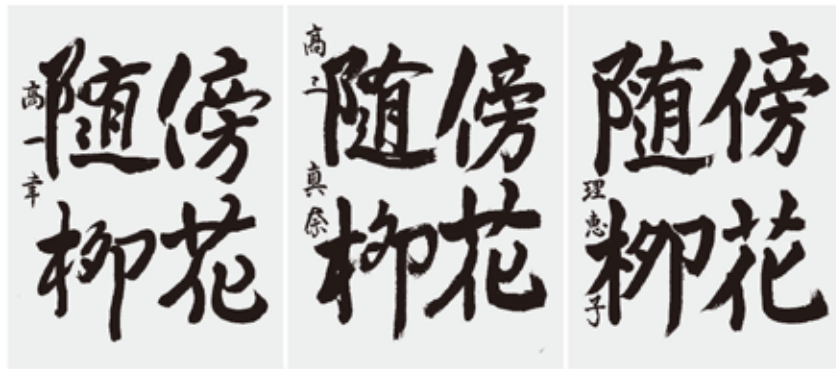 傍花
随柳
高一
傍花
随柳
高二 真奈
傍花
随柳
理恵子